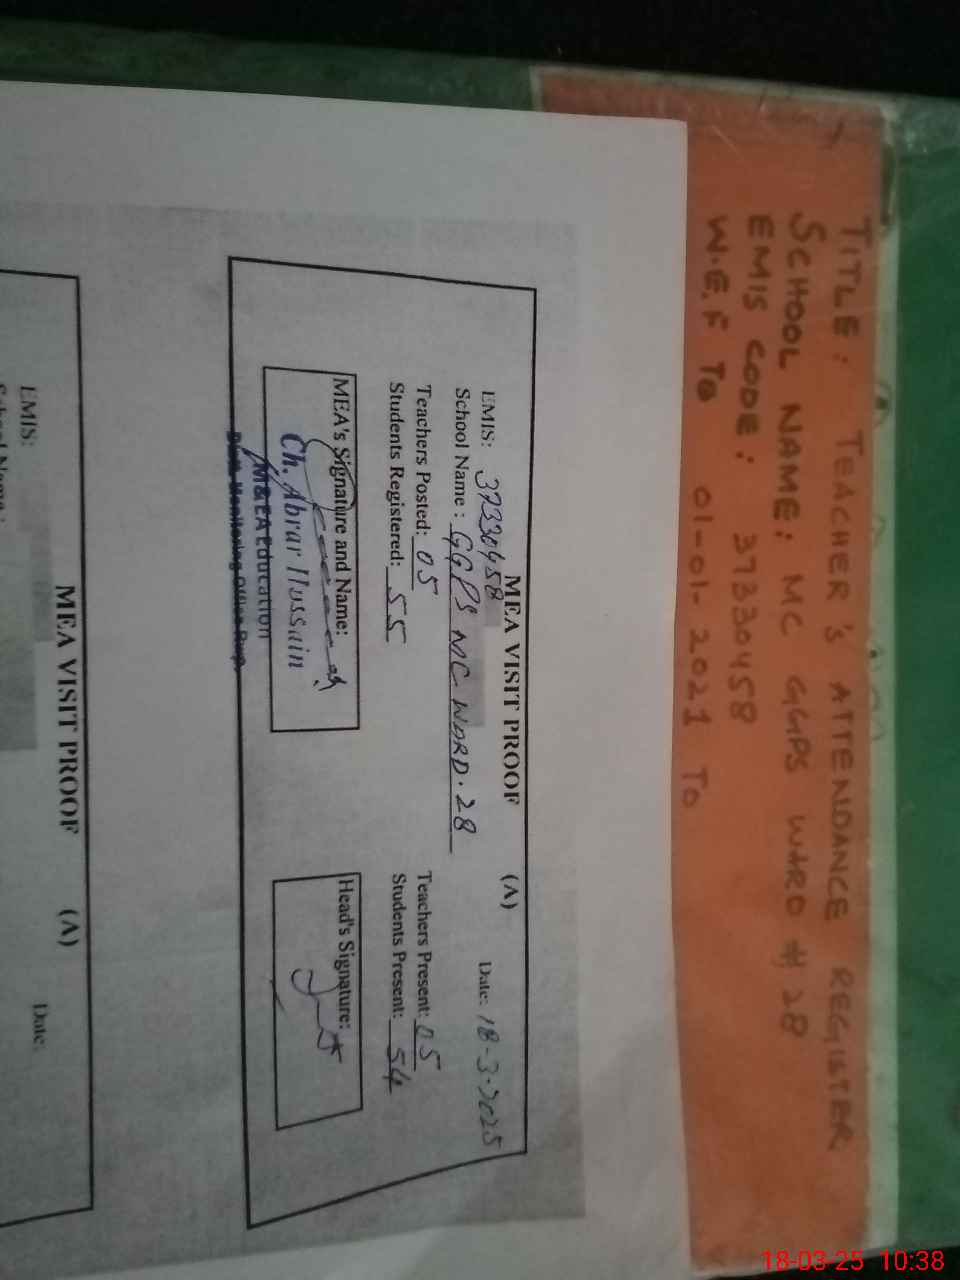 TITLE: TEACHER'S ATTENDANCE REGISTER
SCHOOL NAME: MC GGPS WARD # 28
EMIS CODE: 37330458
W.E.F To 01-01-2021 To
MEA VISIT PROOF (A)
EMIS: 37330458 Date: 18-3-2025
School Name: GGPS MC WARD.28
Teachers Posted: 05 Teachers Present: 05
Students Registered: 55 Students Present: 54
MEA's Signature and Name: Head's Signature:
Ch. Abrar Hussain
M&EA Education
MEA VISIT PROOF (A)
EMIS: Date:
School Name:
18-03-25 10:38